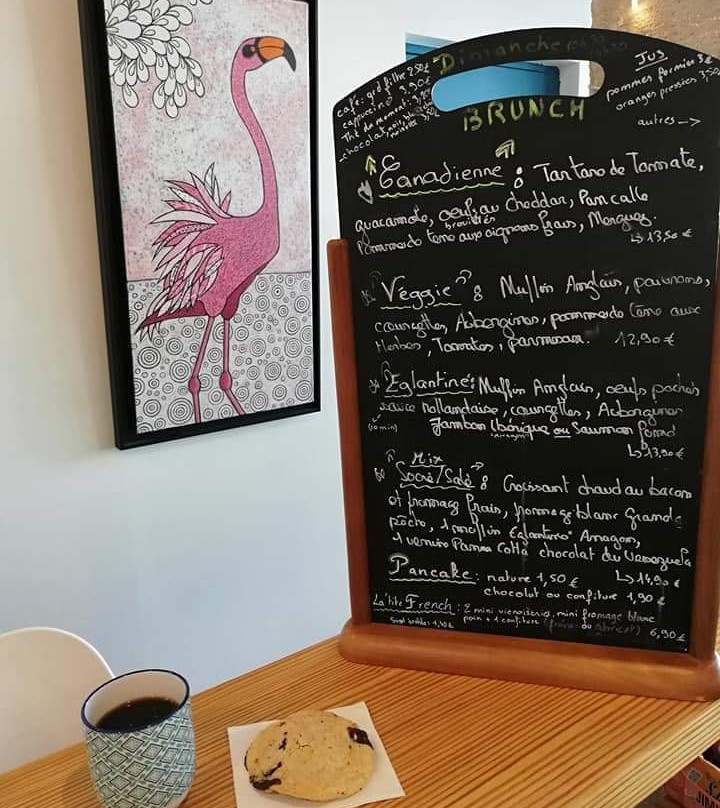 Dimanche
BRUNCH
café: gd filtre 2.50€
cappuccino 3.90€
Thé du moment: 3.90€
chocolat, noir, lait,
Jus
pommes fermier 3€
oranges pressées 3.50
autres →
"Canadienne": Tartare de Tomate,
guacamole, oeufs au cheddar, Pancake
brouillés
Pomme de terre aux oignons frais, Merguez.
↳ 13,50€
"Veggie": Muffin Anglais, poivrons,
courgettes, Aubergines, pomme de terre aux
Herbes, Tomates, parmesan. 12,90€
"Eglantine": Muffin Anglais, oeufs pochés
sauce hollandaise, courgettes, Aubergines
(10 min) Jambon Ibérique ou Saumon fumé
↳ 13,90€
"Mix
Sucré/Salé": Croissant chaud au bacon
et fromage frais, fromage blanc Grand
1 muffin Eglantine Aragon,
1 verrine Panna Cotta chocolat du Venezuela
↳ 14,90€
Pancake: nature 1,50€
chocolat ou confiture 1,90€
La 'tite French: 2 mini viennoiseries, mini fromage blanc
pain + 1 confiture (fraise ou abricot) 6,90€